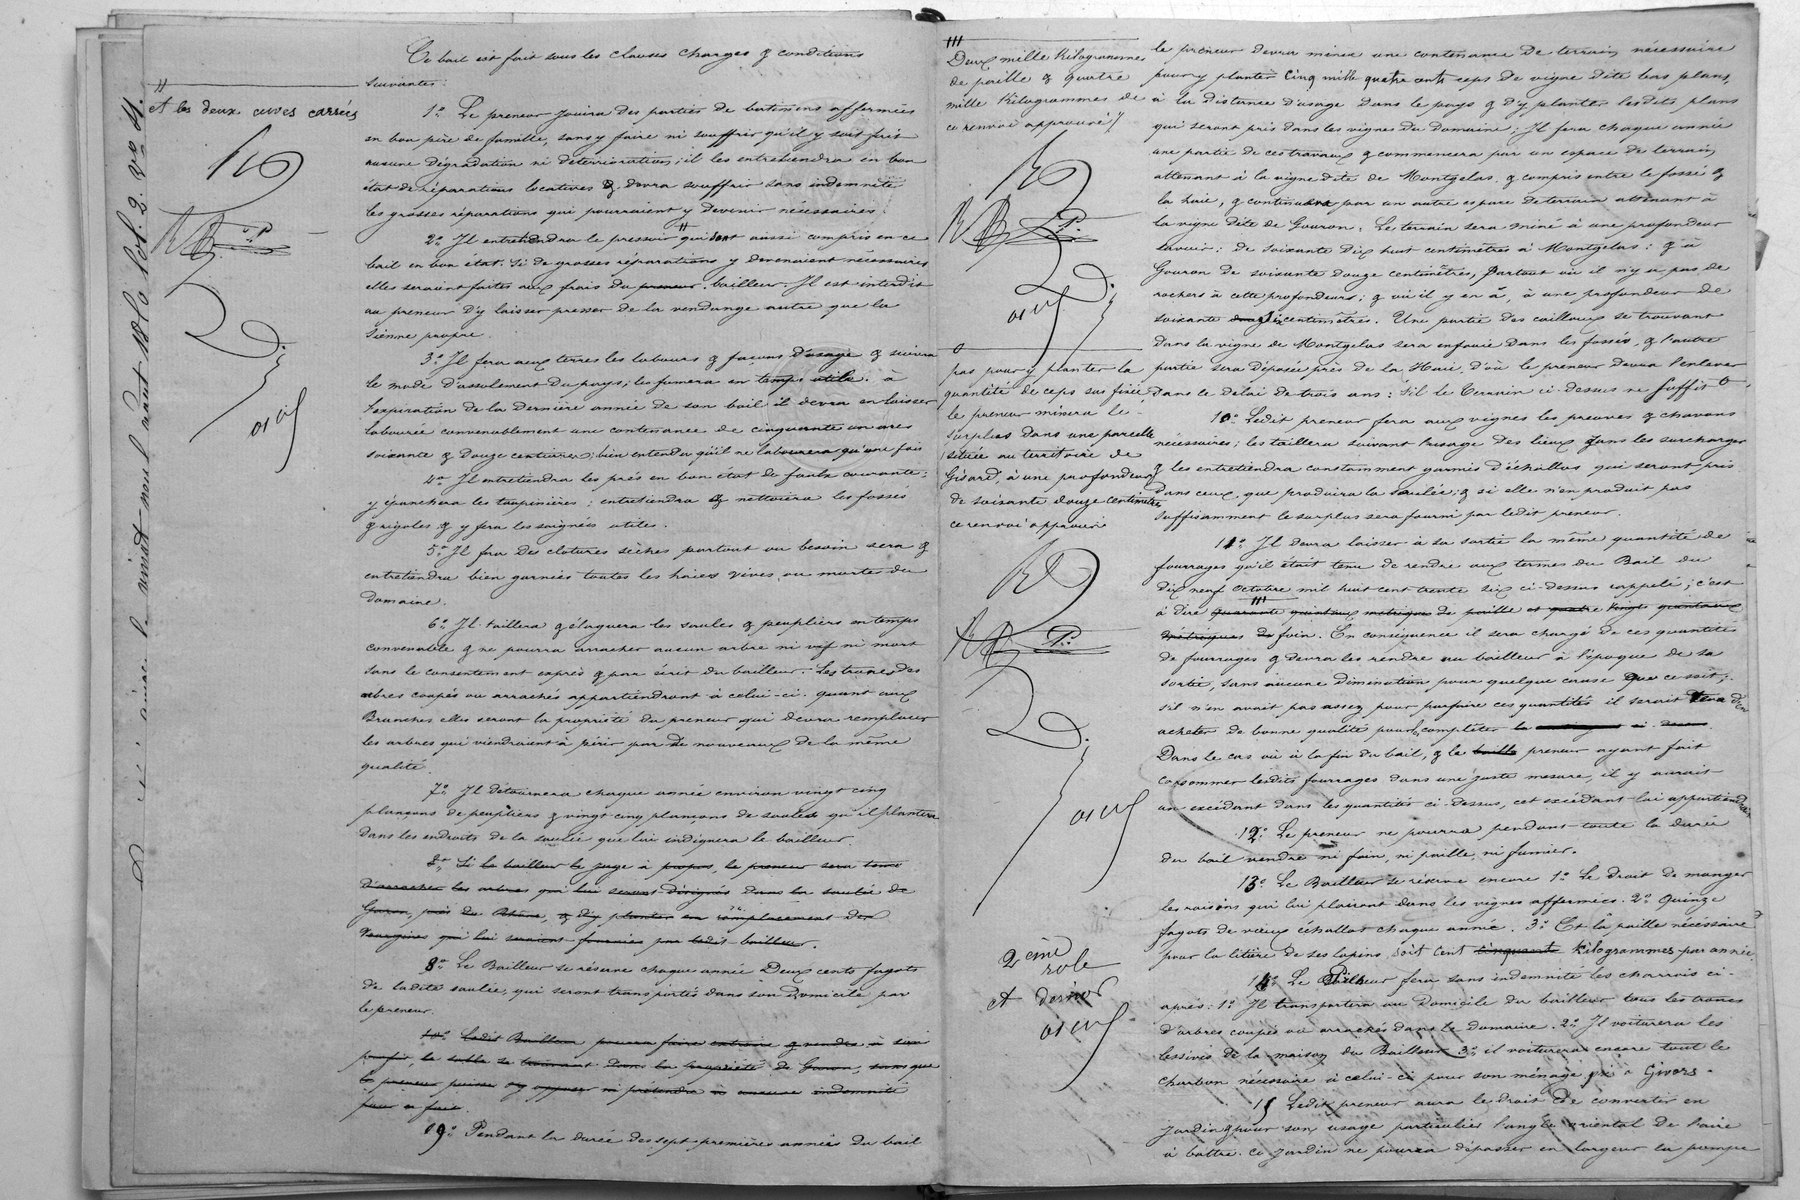 Ce bail est fait sous les clauses charges & conditions
suivantes:
et les deux cuves carrées
1.o Le preneur jouira des parties de batimens affermées
en bon père de famille, sans y faire ni souffrir qu'il y soit fais
aucune dégradation ni détérioration; il les entretiendra en bon
état de réparations locatives & devra souffrir sans indemnité
les grosses réparations qui pourraient y devenir nécessaires.
2.o Il entretiendra le pressoir " qui sont aussi compris en ce
bail en bon état. Si de grosses réparations y devenaient nécessaires
elles seraient faites aux frais du preneur. bailleur. Il est interdit
au preneur d'y laisser presser de la vendange autre que la
sienne propre.
3.o Il fera aux terres les labours & façons d'usage & suivra
le mode d'assolement du pays; les fumera en temps utile. à
l'expiration de la dernière année de son bail il devra en laisser
labourée convenablement une contenance de cinquante un ares
soixante & douze centiares; bien entendu qu'il ne labourera qu'une fois
4.o Il entretiendra les prés en bon état de faulx courante;
y épanchera les taupinières; entretiendra & nettoiera les fossés
& rigoles & y fera les saignées utiles.
5.o Il fera des clotures sèches partout où besoin sera &
entretiendra bien garnies toutes les haies vives ou mortes du
domaine.
6.o Il taillera & élaguera les saules & peupliers en temps
convenable & ne pourra arracher aucun arbre ni vif ni mort
sans le consentement exprès & par écrit du bailleur. Les troncs des
arbres coupés ou arrachés appartiendront à celui-ci. quant aux
Branches elles seront la propriété du preneur qui devra remplacer
les arbres qui viendraient à périr par de nouveaux de la même
qualité.
7.o Il détournera chaque année environ vingt cinq
plançons de peupliers & vingt cinq plançons de saules qu'il plantera
dans les endroits de la saulée que lui indiquera le bailleur.
8.o Si le bailleur le juge à propos, le preneur sera tenu
d'arracher les arbres qui lui seront désignés dans la saulée de
Gouron, près du Rhône, & d'y planter en remplacement des
qui lui seraient fournies par ledit bailleur.
8.o Le Bailleur se réserve chaque année Deux cents fagots
de ladite saulée, qui seront transportés dans son domicile par
le preneur.
10.o Ledit Bailleur pourra faire extraire & vendre à son
profit, le sable se trouvant dans la propriété de Gouron, sans que
le preneur puisse s'y opposer ni prétendre à aucune indemnité
pour ce fait.
9.o Pendant la durée des sept premières années du bail
Deux mille Kilogrammes
de paille & quatre
mille Kilogrammes de
ce renvoi approuvé
pas pour y planter la
quantité de ceps sus fixée
le preneur minera le
surplus dans une parcelle
située au territoire de
Gisard, à une profondeur
de soixante douze centimètres
ce renvoi approuvé
2ème
role
et dernier
le preneur devra miner une contenance de terrain nécessaire
pour y planter cinq mille quatre cents ceps de vigne dite bas plans,
à la distance d'usage dans le pays & d'y planter lesdits plans
qui seront pris dans les vignes du domaine; Il fera chaque année
une partie de ces travaux & commencera par un espace de terrain
attenant à la vigne dite de Montgelas. & compris entre le fossé &
la haie, & continuera par un autre espace de terrain attenant à
la vigne dite de Gouron. Le terrain sera miné à une profondeur
savoir: de soixante dix huit centimètres à Montgelas; & à
Gouron de soixante douze centimètres, partout où il n'y a pas de
rochers à cette profondeur; & où il y en a, à une profondeur de
soixante centimètres. Une partie des cailloux se trouvant
dans la vigne de Montgelas sera enfouie dans les fossés, & l'autre
partie sera déposée près de la Haie, d'où le preneur devra l'enlever
dans le délai de trois ans; si le terrain ci-dessus ne suffit
10.o Ledit preneur fera aux vignes les preuves & chavons
nécessaires; les taillera suivant l'usage des lieux sans les surcharger
& les entretiendra constamment garnies d'échallas qui seront pris
dans ceux que produira la saulée; & si elle n'en produit pas
suffisamment le surplus sera fourni par ledit preneur.
11.o Il devra laisser à sa sortie la même quantité de
fourrages qu'il était tenu de rendre aux termes du Bail du
dix neuf octobre mil huit cent trente six ci-dessus rappelé; c'est
à dire quarante quintaux métriques de paille et quatre vingts quintaux
métriques de foin. En conséquence il sera chargé de ces quantités
de fourrages & devra les rendre au bailleur à l'époque de sa
sortie, sans aucune diminution pour quelque cause que ce soit;
s'il n'en avait pas assez pour parfaire ces quantités il serait tenu d'en
acheter de bonne qualité pour les compléter
Dans le cas où à la fin du bail, & le preneur ayant fait
consommer lesdits fourrages dans une juste mesure, il y aurait
un excédant dans les quantités ci-dessus, cet excédant lui appartiendrait
12.o Le preneur ne pourra pendant toute la durée
du bail vendre ni foin, ni paille, ni fumier.
13.o Le Bailleur se réserve encore 1.o Le droit de manger
les raisins qui lui plairont dans les vignes affermées. 2.o Quinze
fagots de vieux échallas chaque année. 3.o Et la paille nécéssaire
pour la litière de ses lapins, soit cent cinquante kilogrammes par année.
14.o Le Bailleur fera sans indemnité les charrois ci-
après: 1.o Il transportera au domicile du bailleur tous les troncs
d'arbres coupés ou arrachés dans le domaine. 2.o Il voiturera les
lessives de la maison du Bailleur 3.o il voiturera encore tout le
charbon nécessaire à celui-ci pour son ménage pris à Givors.
15 Ledit preneur aura le droit de convertir en
jardin pour son usage particulier l'angle oriental de l'aire
à battre. Ce jardin ne pourra dépasser en largeur la pompe